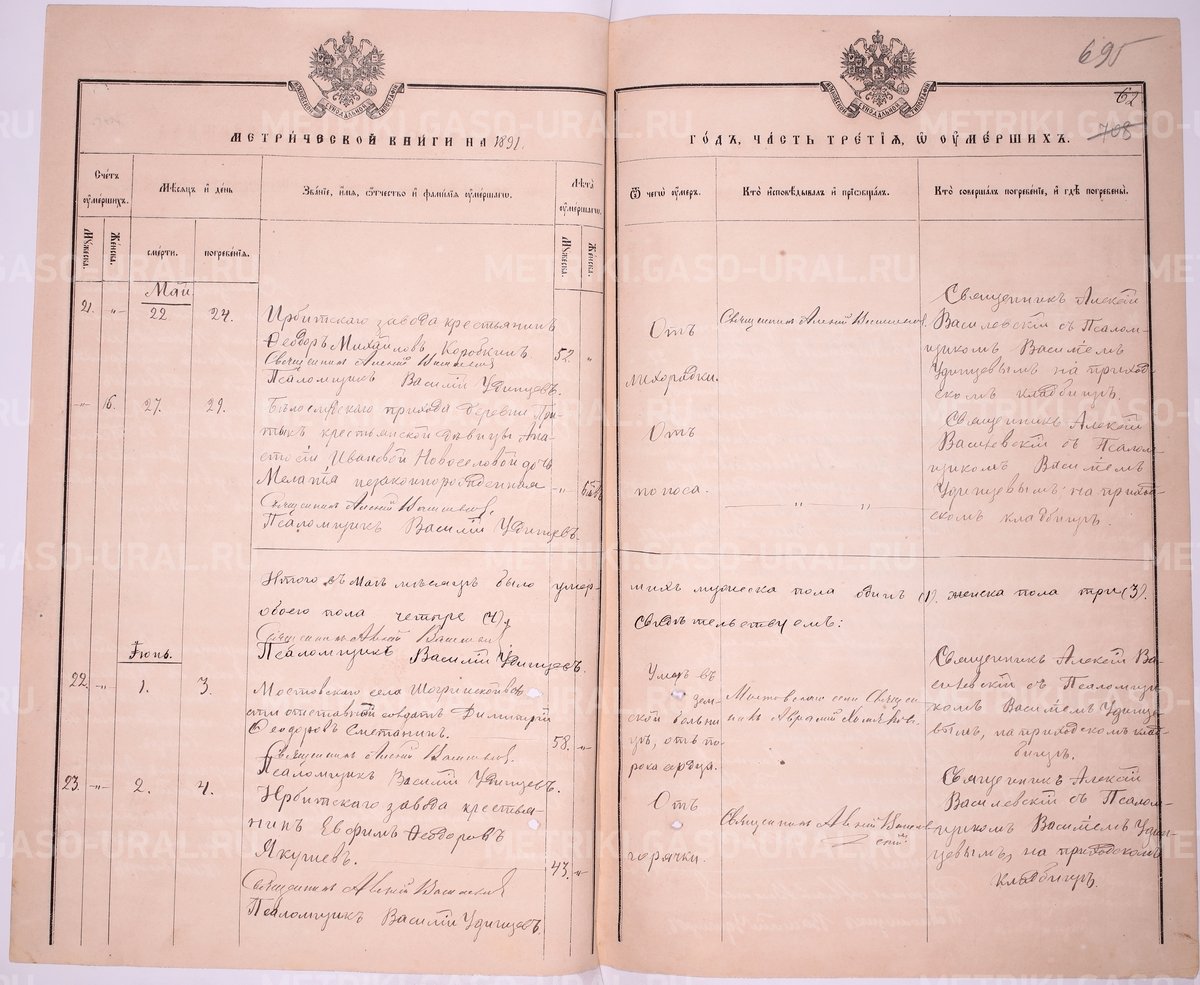 695
62
708
МЕТРИЧЕСКОЙ КНИГИ НА 1891
ГОДЪ, ЧАСТЬ ТРЕТІЯ, Ѿ ОУМЕРШИХЪ.
Счетъ оумершихъ.
Мѣсяцъ и день
Званіе, имя, отчество и фамилія оумершагѡ.
Лѣта оумершагѡ.
Ѿ чегѡ оумеръ.
Кто исповѣдывалъ и пріобщалъ.
Кто совершалъ погребеніе, и гдѣ погребены.
Мужеска.
Женска.
смерти.
погребенія.
Мужеска.
Женска.
Май
21. " 22 24.
Ирбитскаго завода крестьянинъ
Ѳеодоръ Михайловъ Коробкинъ.
52 "
Священникъ Алексій Василевскій
Псаломщикъ Василій Удинцевъ.
Отъ
лихорадки.
Священникъ Алексій Василевскій
Священникъ Алексій
Василевскій съ Псалом-
щикомъ Василіемъ
Удинцевымъ на приход-
скомъ кладбищѣ.
" 16. 27. 29.
Бѣлослудскаго прихода деревни
крестьянской дѣвицы Ана-
стасіи Ивановой Новоселовой дочь
Меланія незаконнорожденная
Священникъ Алексій Василевскій
Псаломщикъ Василій Удинцевъ.
Отъ
поноса.
" "
Священникъ Алексій
Василевскій съ Псалом-
щикомъ Василіемъ
Удинцевымъ на приход-
скомъ кладбищѣ.
Итого въ маѣ мѣсяцѣ было умер-
шихъ мужеска пола одинъ (1). женска пола три (3).
обоего пола четыре (4),
свидѣтельствуемъ:
Священникъ Алексій Василевскій
Псаломщикъ Василій Удинцевъ.
Іюнь.
22. " 1. 3.
Мостовскаго села
отставной солдатъ Димитрій
Ѳеодоровъ Сметанинъ.
58. "
Священникъ Алексій Василевскій
Псаломщикъ Василій Удинцевъ.
Умеръ въ
зем-
ской больни-
цѣ, отъ по-
рока сердца.
Мостовскаго села Священ-
никъ Авраамій Хомяковъ
Священникъ Алексій Ва-
силевскій съ Псаломщи-
комъ Василіемъ Удинце-
вымъ, на приходскомъ клад-
бищѣ.
23. " 2. 4.
Ирбитскаго завода крестья-
нинъ Евфимъ Ѳеодоровъ
Якушевъ.
43. "
Священникъ Алексій Василевскій
Псаломщикъ Василій Удинцевъ.
Отъ
горячки.
Священникъ Алексій Василев-
скій
Священникъ Алексій
Василевскій съ Псалом-
щикомъ Василіемъ Удин-
цевымъ, на приходскомъ
кладбищѣ.
METRIKI.GASO-URAL.RU